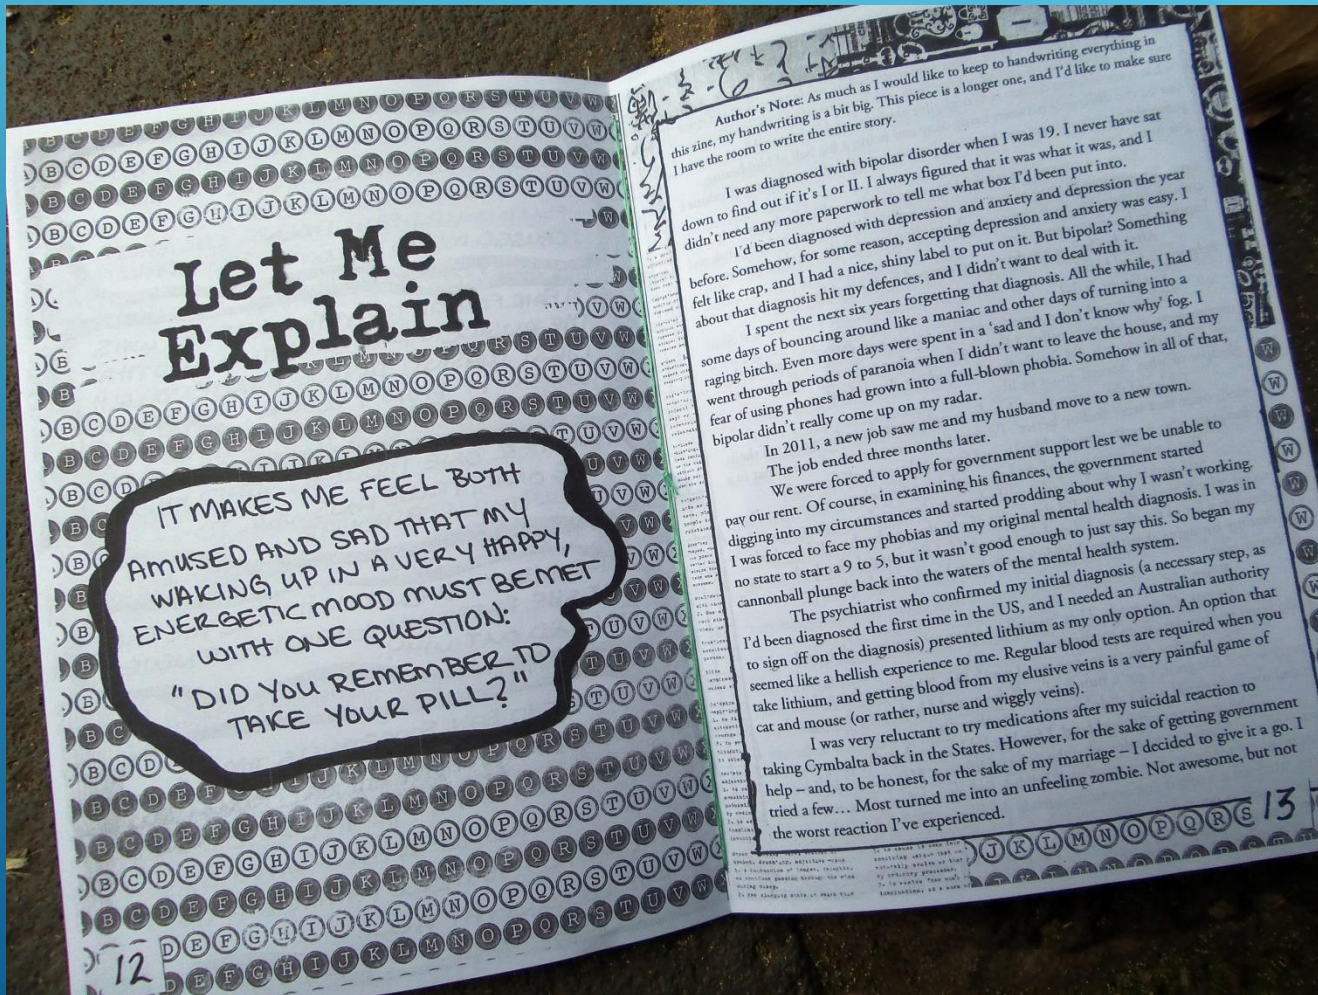 Let Me
Explain
IT MAKES ME FEEL BOTH
AMUSED AND SAD THAT MY
WAKING UP IN A VERY HAPPY,
ENERGETIC MOOD MUST BE MET
WITH ONE QUESTION:
"DID YOU REMEMBER TO
TAKE YOUR PILL?"
12
Author's Note: As much as I would like to keep to handwriting everything in
this zine, my handwriting is a bit big. This piece is a longer one, and I'd like to make sure
I have the room to write the entire story.
I was diagnosed with bipolar disorder when I was 19. I never have sat
down to find out if it's I or II. I always figured that it was what it was, and I
didn't need any more paperwork to tell me what box I'd been put into.
I'd been diagnosed with depression and anxiety and depression the year
before. Somehow, for some reason, accepting depression and anxiety was easy. I
felt like crap, and I had a nice, shiny label to put on it. But bipolar? Something
about that diagnosis hit my defences, and I didn't want to deal with it.
I spent the next six years forgetting that diagnosis. All the while, I had
some days of bouncing around like a maniac and other days of turning into a
raging bitch. Even more days were spent in a 'sad and I don't know why' fog. I
went through periods of paranoia when I didn't want to leave the house, and my
fear of using phones had grown into a full-blown phobia. Somehow in all of that,
bipolar didn't really come up on my radar.
In 2011, a new job saw me and my husband move to a new town.
The job ended three months later.
We were forced to apply for government support lest we be unable to
pay our rent. Of course, in examining his finances, the government started
digging into my circumstances and started prodding about why I wasn't working.
I was forced to face my phobias and my original mental health diagnosis. I was in
no state to start a 9 to 5, but it wasn't good enough to just say this. So began my
cannonball plunge back into the waters of the mental health system.
The psychiatrist who confirmed my initial diagnosis (a necessary step, as
I'd been diagnosed the first time in the US, and I needed an Australian authority
to sign off on the diagnosis) presented lithium as my only option. An option that
seemed like a hellish experience to me. Regular blood tests are required when you
take lithium, and getting blood from my elusive veins is a very painful game of
cat and mouse (or rather, nurse and wiggly veins).
I was very reluctant to try medications after my suicidal reaction to
taking Cymbalta back in the States. However, for the sake of getting government
help – and, to be honest, for the sake of my marriage – I decided to give it a go. I
tried a few… Most turned me into an unfeeling zombie. Not awesome, but not
the worst reaction I've experienced.
13